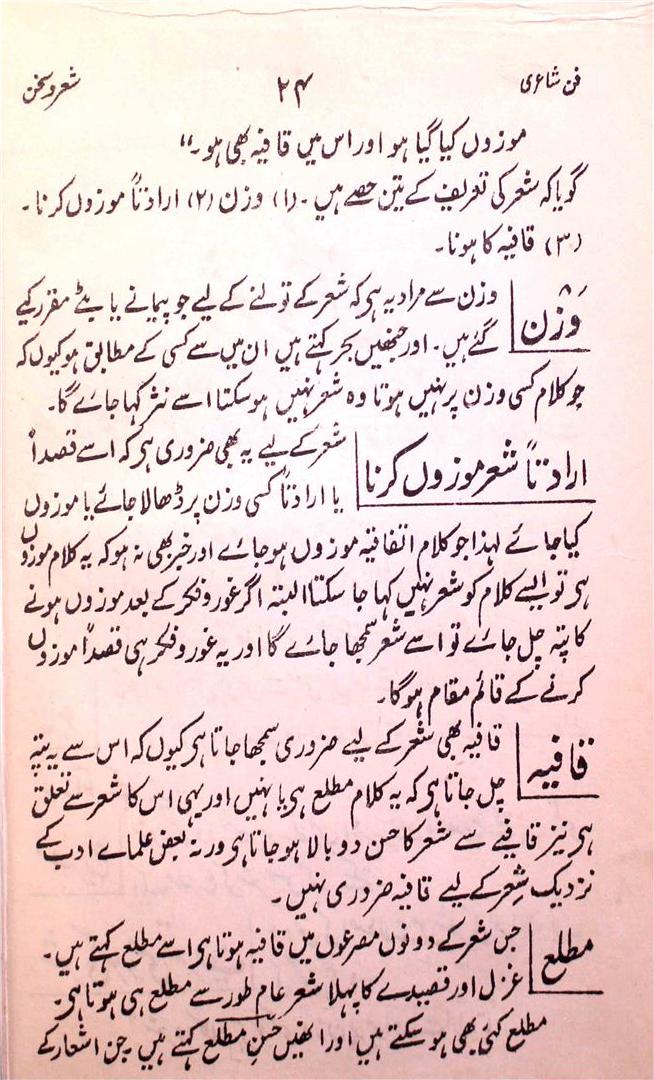 فن شاعری ۲۴ شعر و سخن
موزوں کیا گیا ہو اور اس میں قافیہ بھی ہو۔"
گویا کہ شعر کی تعریف کے تین حصے ہیں۔ (۱) وزن (۲) ارادتاً موزوں کرنا۔
(۳) قافیہ کا ہونا۔
وَزْن
وزن سے مراد یہ ہی کہ شعر کے تولنے کے لیے جو پیمانے یا بٹے مقرر کیے
گئے ہیں۔ اور جنھیں بحر کہتے ہیں ان میں سے کسی کے مطابق ہو کیوں کہ
جو کلام کسی وزن پر نہیں ہوتا وہ شعر نہیں ہو سکتا اسے نثر کہا جائے گا۔
ارادتاً شعر موزوں کرنا
شعر کے لیے یہ بھی ضروری ہی کہ اسے قصداً
یا ارادتاً کسی وزن پر ڈھالا جائے یا موزوں
کیا جائے لہذا جو کلام اتفاقیہ موزوں ہو جائے اور خبر بھی نہ ہو کہ یہ کلام موزوں
ہی تو ایسے کلام کو شعر نہیں کہا جا سکتا البتہ اگر غور و فکر کے بعد موزوں ہونے
کا پتہ چل جائے تو اسے شعر سمجھا جائے گا اور یہ غور و فکر ہی قصداً موزوں
کرنے کے قائم مقام ہو گا۔
قافیہ
قافیہ بھی شعر کے لیے ضروری سمجھا جاتا ہی کیوں کہ اس سے یہ پتہ
چل جاتا ہی کہ یہ کلام مطلع ہی یا نہیں اور یہی اس کا شعر سے تعلق
ہی نیز قافیے سے شعر کا حسن دوبالا ہو جاتا ہی ورنہ بعض علمائے ادب کے
نزدیک شِعر کے لیے قافیہ ضروری نہیں۔
مطلع
جس شعر کے دونوں مصرعوں میں قافیہ ہوتا ہی اسے مطلع کہتے ہیں۔
غزل اور قصیدے کا پہلا شعر عام طور سے مطلع ہی ہوتا ہی۔
مطلع کئی بھی ہو سکتے ہیں اور انھیں حسنِ مطلع کہتے ہیں۔ جن اشعار کے